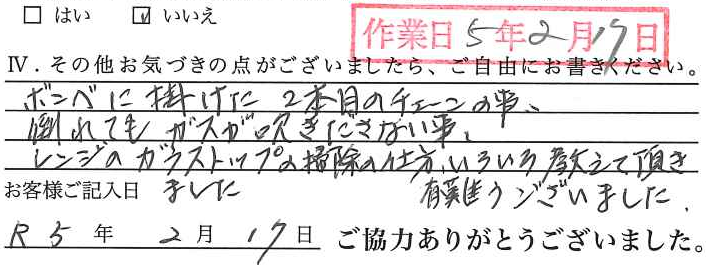 □ はい ☑ いいえ
作業日 5年2月17日
Ⅳ．その他お気づきの点がございましたら、ご自由にお書きください。
ボンベに掛けた2本目のチェーンの事、
倒れても ガスが吹きださない事、
レンジのガラストップの掃除の仕方、いろいろ教えて頂き
お客様ご記入日 ました 有難うございました。
R5年 2月 17日 ご協力ありがとうございました。